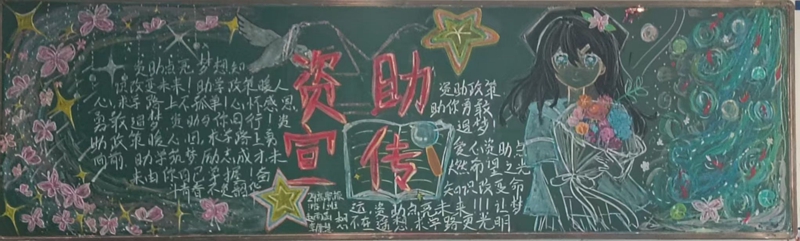 资助点亮梦想知
识改变未来！助学政策暖人
心，求学路上不孤单！心怀感恩
勇敢追梦 资助与你同行！资
助政策暖人心 回求学路上勇
向前 助学筑梦 励志成才未
来由你自己掌握！
资助
宣传
资助政策
助你勇敢
追梦！
爱心资助点
燃希望之光
知识改变命
运 资助点亮未来！！！让梦
想不在遥想求学路更光明